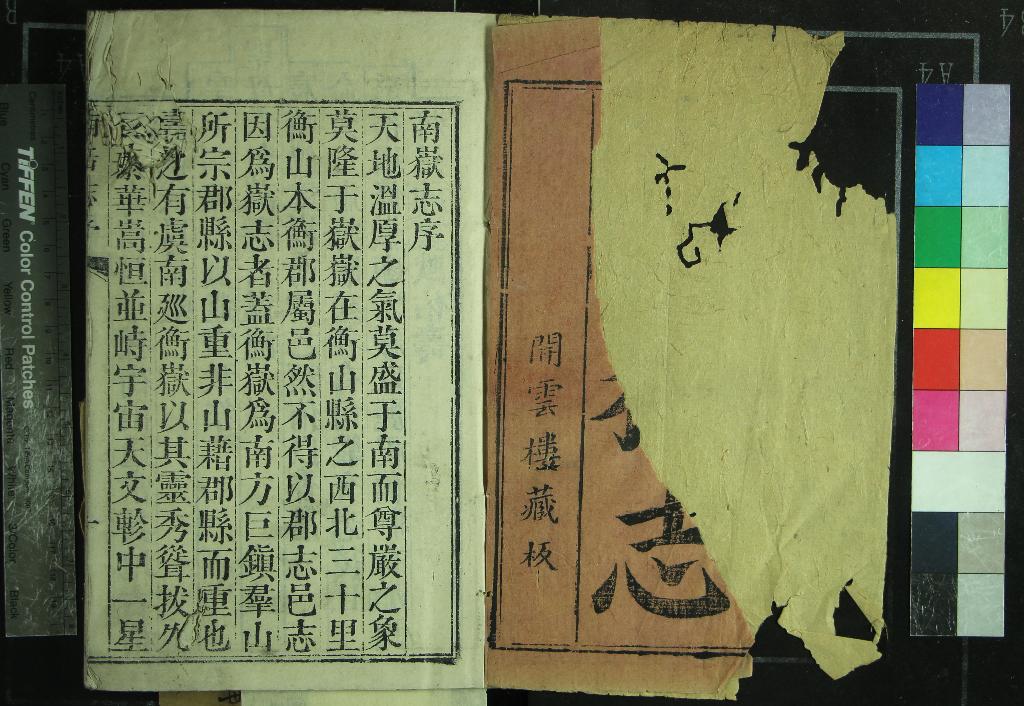 志
開雲樓藏板
南嶽志序
天地溫厚之氣莫盛于南而尊嚴之象
莫隆于嶽嶽在衡山縣之西北三十里
衡山本衡郡屬邑然不得以郡志邑志
因爲嶽志者蓋衡嶽爲南方巨鎭羣山
所宗郡縣以山重非山藉郡縣而重也
粤有虞南廵衡嶽以其靈秀聳拔九
華嵩恒並峙宇宙天文軫中一星
TIFFEN Color Control Patches
Blue
Cyan
Green
Yellow
Red
Magenta
White
3/Color
Black
A4